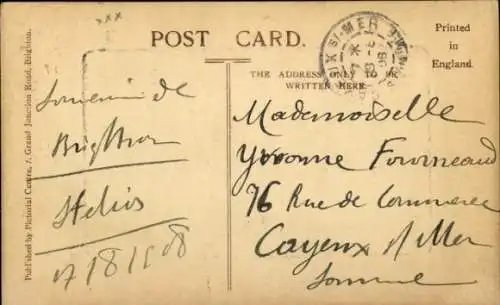 xxx
POST CARD.
Printed
in
England.
THE ADDRESS ONLY TO BE
WRITTEN HERE.
Published by Pictorial Centre, 7, Grand Junction Road, Brighton.
Souvenir de
Brighton
Helios
17/8/1908
Mademoiselle
Yvonne Fourneaud
76 Rue de Commerce
Cayeux s/ Mer
Somme